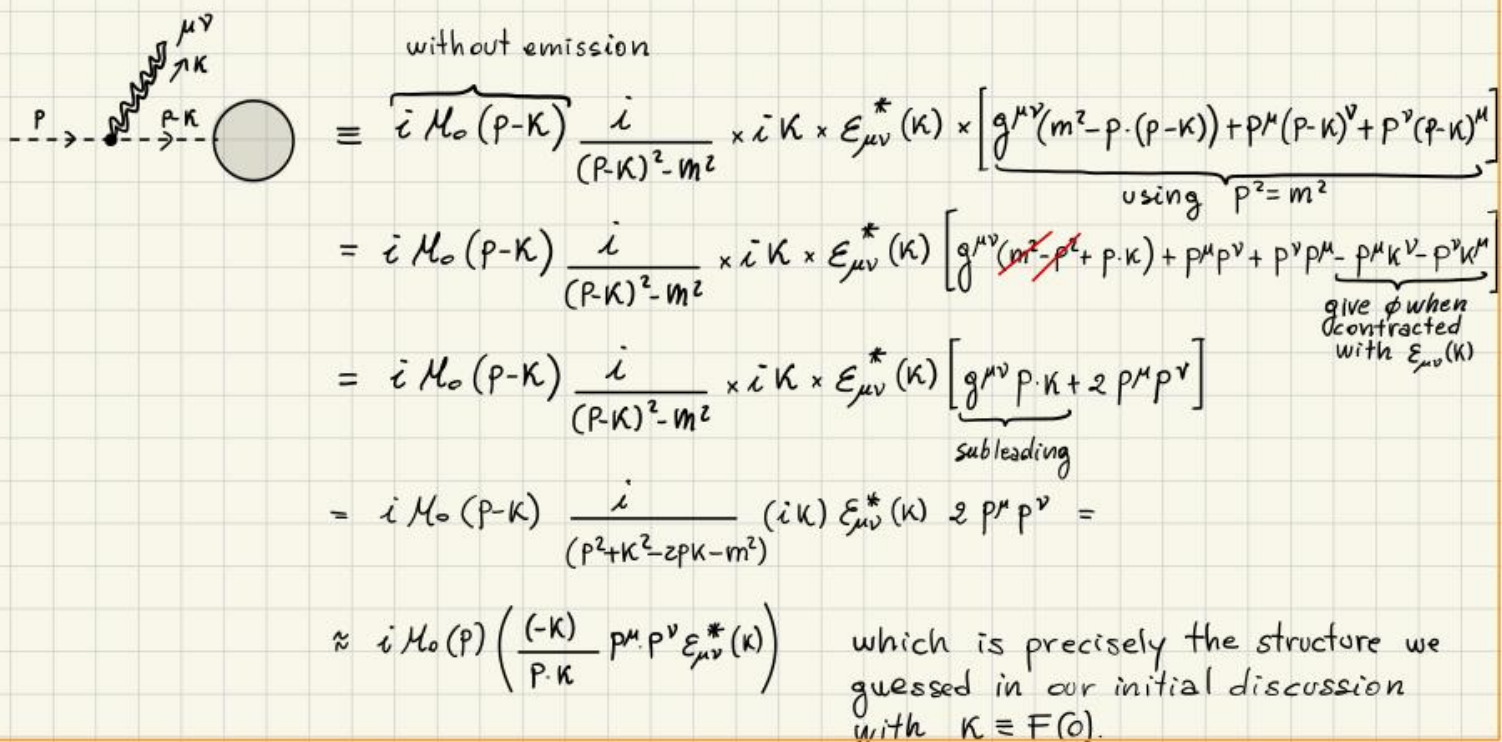 μν
↗K
without emission
P
P-K
≡ i M₀(P-K) i/((P-K)²-m²) × i K × ε*_μν(K) × [g^μν(m²-p·(p-K))+p^μ(p-K)^ν+p^ν(p-K)^μ]
using p²=m²
= i M₀(p-K) i/((P-K)²-m²) × i K × ε*_μν(K) [g^μν(m²-p²+p·K)+p^μp^ν+p^νp^μ-p^μK^ν-p^νK^μ]
give ϕ when
contracted
with ε_μν(K)
= i M₀(p-K) i/((P-K)²-m²) × i K × ε*_μν(K) [g^μν p·K+2 p^μp^ν]
subleading
= i M₀(p-K) i/(p²+K²-2pK-m²) (iK) ε*_μν(K) 2 p^μp^ν =
≈ i M₀(p) ((-K)/(p·K) p^μ·p^ν ε*_μν(K)) which is precisely the structure we
guessed in our initial discussion
with K ≡ F(0).